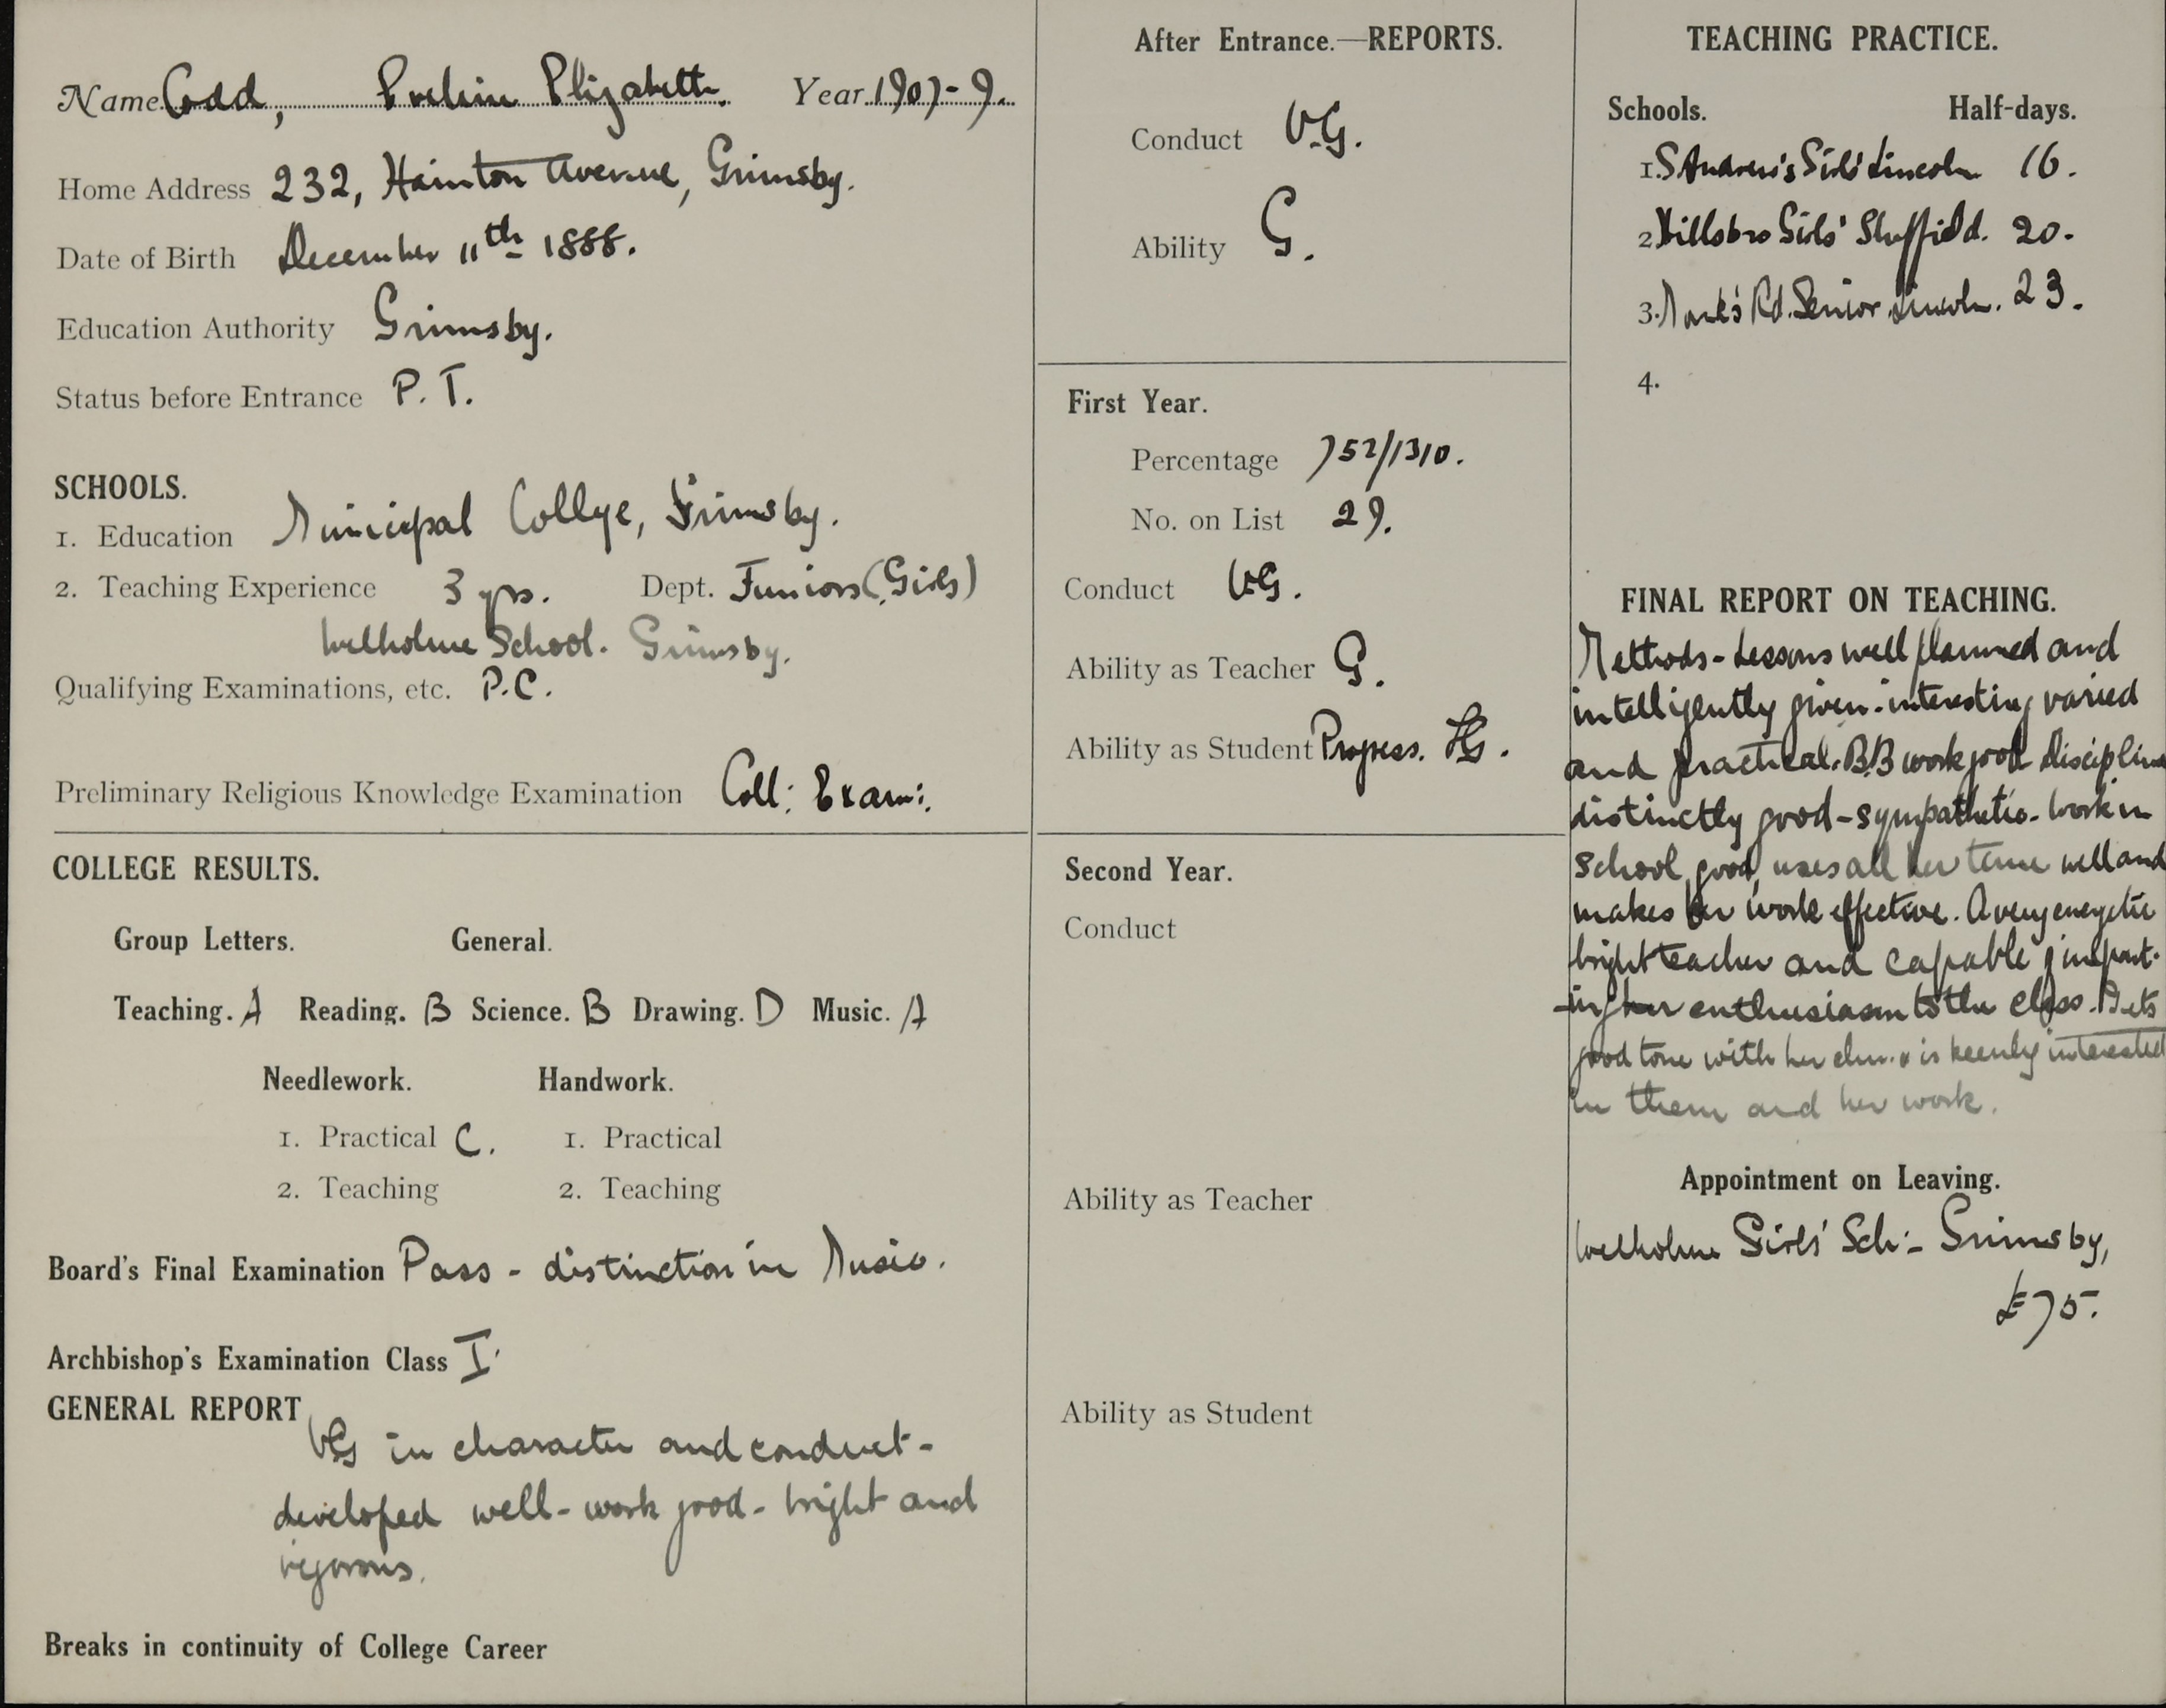 Name Codd, Eveline Elizabeth. Year 1907-9.
Home Address 232, Hainton Avenue, Grimsby.
Date of Birth December 11th 1888.
Education Authority Grimsby.
Status before Entrance P. T.
SCHOOLS.
1. Education Municipal College, Grimsby.
2. Teaching Experience 3 yrs. Dept. Juniors (Girls)
Welholme School. Grimsby.
Qualifying Examinations, etc. P.C.
Preliminary Religious Knowledge Examination Coll: Exam:.
COLLEGE RESULTS.
Group Letters. General.
Teaching. A Reading. B Science. B Drawing. D Music. A
Needlework. Handwork.
1. Practical C. 1. Practical
2. Teaching 2. Teaching
Board's Final Examination Pass - distinction in Music.
Archbishop's Examination Class I.
GENERAL REPORT
VG in character and conduct -
developed well - work good - bright and
vigorous.
Breaks in continuity of College Career
After Entrance.—REPORTS.
Conduct V.G.
Ability G.
First Year.
Percentage 752/1310.
No. on List 29.
Conduct VG.
Ability as Teacher G.
Ability as Student Progress.
Second Year.
Conduct
Ability as Teacher
Ability as Student
TEACHING PRACTICE.
Schools. Half-days.
1. S Andrew's Girls' Lincoln 16.
2 Hillsbro Girls' Sheffield. 20.
3. Monk's Rd. Senior Lincoln. 23.
4.
FINAL REPORT ON TEACHING.
Methods - Lessons well planned and
intelligently given - interesting varied
and practical. B.B work good discipline
distinctly good - sympathetic. Work in
school good, uses all her time well and
makes her work effective. A very energetic
bright teacher and capable of impart-
-ing her enthusiasm to the class. Gets
good tone with her chn. & is keenly interested
in them and her work.
Appointment on Leaving.
Welholme Girls' Sch: - Grimsby,
£75.